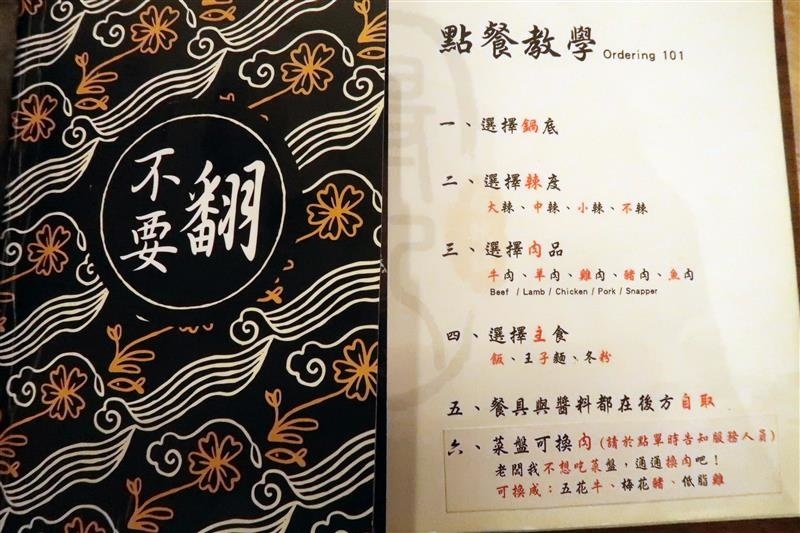 不要
翻
點餐教學 Ordering 101
一、選擇鍋底
二、選擇辣度
大辣、中辣、小辣、不辣
三、選擇肉品
牛肉、羊肉、雞肉、豬肉、魚肉
Beef / Lamb / Chicken / Pork / Snapper
四、選擇主食
飯、王子麵、冬粉
五、餐具與醬料都在後方自取
六、菜盤可換肉(請於點單時告知服務人員)
老闆我不想吃菜盤，通通換肉吧！
可換成：五花牛、梅花豬、低脂雞